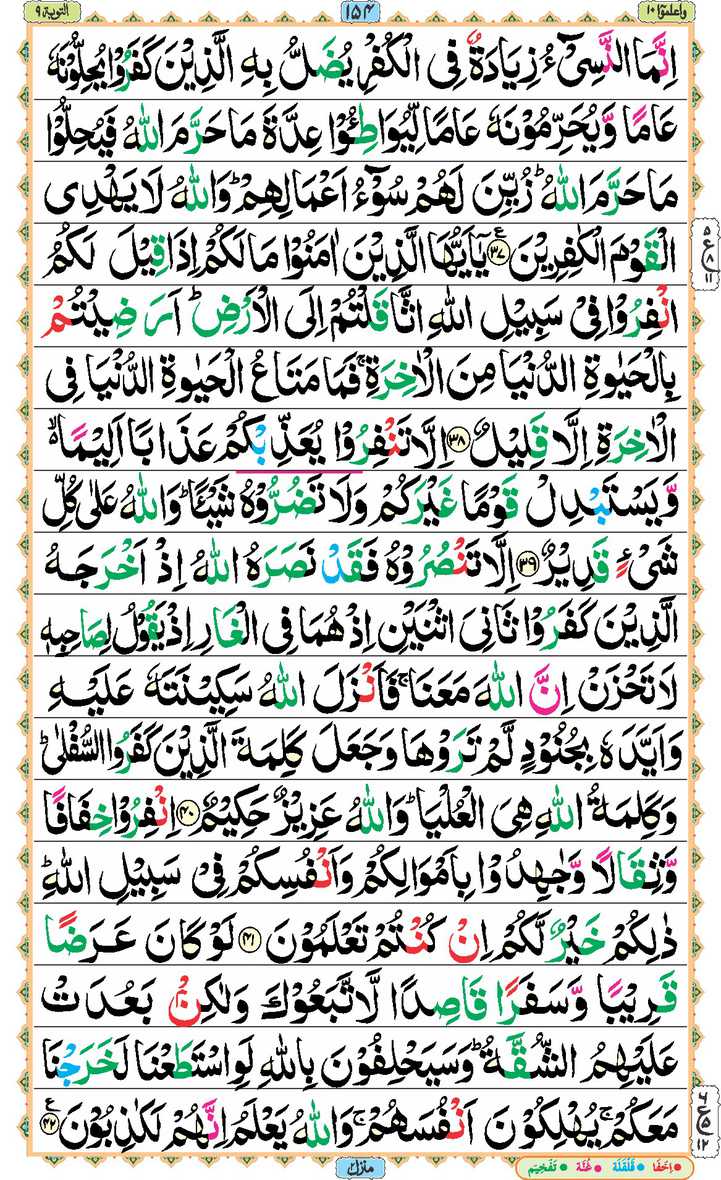 واعلموٓا ۱۰ ۱۵۴ التوبة ۹
اِنَّمَا النَّسِیْٓءُ زِیَادَةٌ فِی الْكُفْرِ یُضَلُّ بِهِ الَّذِیْنَ كَفَرُوْا یُحِلُّوْنَهٗ
عَامًا وَّ یُحَرِّمُوْنَهٗ عَامًا لِّیُوَاطِـُٔوْا عِدَّةَ مَا حَرَّمَ اللّٰهُ فَیُحِلُّوْا
مَا حَرَّمَ اللّٰهُ ؕ زُیِّنَ لَهُمْ سُوْٓءُ اَعْمَالِهِمْ ؕ وَ اللّٰهُ لَا یَهْدِی
الْقَوْمَ الْكٰفِرِیْنَ ۧ‏﴿۳۷﴾ یٰۤاَیُّهَا الَّذِیْنَ اٰمَنُوْا مَا لَكُمْ اِذَا قِیْلَ لَكُمُ
انْفِرُوْا فِیْ سَبِیْلِ اللّٰهِ اثَّاقَلْتُمْ اِلَی الْاَرْضِ ؕ اَرَضِیْتُمْ
بِالْحَیٰوةِ الدُّنْیَا مِنَ الْاٰخِرَةِ ۚ فَمَا مَتَاعُ الْحَیٰوةِ الدُّنْیَا فِی
الْاٰخِرَةِ اِلَّا قَلِیْلٌ ﴿۳۸﴾ اِلَّا تَنْفِرُوْا یُعَذِّبْكُمْ عَذَابًا اَلِیْمًا ۙ۬
وَّ یَسْتَبْدِلْ قَوْمًا غَیْرَكُمْ وَ لَا تَضُرُّوْهُ شَیْـًٔا ؕ وَ اللّٰهُ عَلٰی كُلِّ
شَیْءٍ قَدِیْرٌ ﴿۳۹﴾ اِلَّا تَنْصُرُوْهُ فَقَدْ نَصَرَهُ اللّٰهُ اِذْ اَخْرَجَهُ
الَّذِیْنَ كَفَرُوْا ثَانِیَ اثْنَیْنِ اِذْ هُمَا فِی الْغَارِ اِذْ یَقُوْلُ لِصَاحِبِهٖ
لَا تَحْزَنْ اِنَّ اللّٰهَ مَعَنَا ۚ فَاَنْزَلَ اللّٰهُ سَكِیْنَتَهٗ عَلَیْهِ
وَ اَیَّدَهٗ بِجُنُوْدٍ لَّمْ تَرَوْهَا وَ جَعَلَ كَلِمَةَ الَّذِیْنَ كَفَرُوا السُّفْلٰی ؕ
وَ كَلِمَةُ اللّٰهِ هِیَ الْعُلْیَا ؕ وَ اللّٰهُ عَزِیْزٌ حَكِیْمٌ ﴿۴۰﴾ اِنْفِرُوْا خِفَافًا
وَّ ثِقَالًا وَّ جَاهِدُوْا بِاَمْوَالِكُمْ وَ اَنْفُسِكُمْ فِیْ سَبِیْلِ اللّٰهِ ؕ
ذٰلِكُمْ خَیْرٌ لَّكُمْ اِنْ كُنْتُمْ تَعْلَمُوْنَ ﴿۴۱﴾ لَوْ كَانَ عَرَضًا
قَرِیْبًا وَّ سَفَرًا قَاصِدًا لَّاتَّبَعُوْكَ وَ لٰكِنْۢ بَعُدَتْ
عَلَیْهِمُ الشُّقَّةُ ؕ وَ سَیَحْلِفُوْنَ بِاللّٰهِ لَوِ اسْتَطَعْنَا لَخَرَجْنَا
مَعَكُمْ ۚ یُهْلِكُوْنَ اَنْفُسَهُمْ ۚ وَ اللّٰهُ یَعْلَمُ اِنَّهُمْ لَكٰذِبُوْنَ ۧ‏﴿۴۲﴾
ع ۵ ۸ ۱۱
ع ۶ ۵ ۱۲
منزل ۲
اِخْفَا قَلْقَلَه غُنَّه تَفْخِیْم